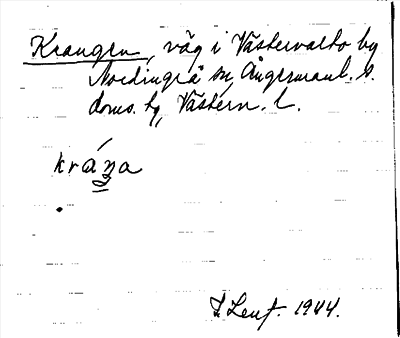 Krangen, väg i Västervalto by
Nordingrå sn, Ångermanl. s.
doms. tg, Västern. l.
kráŋa
I. Lenf. 1944.